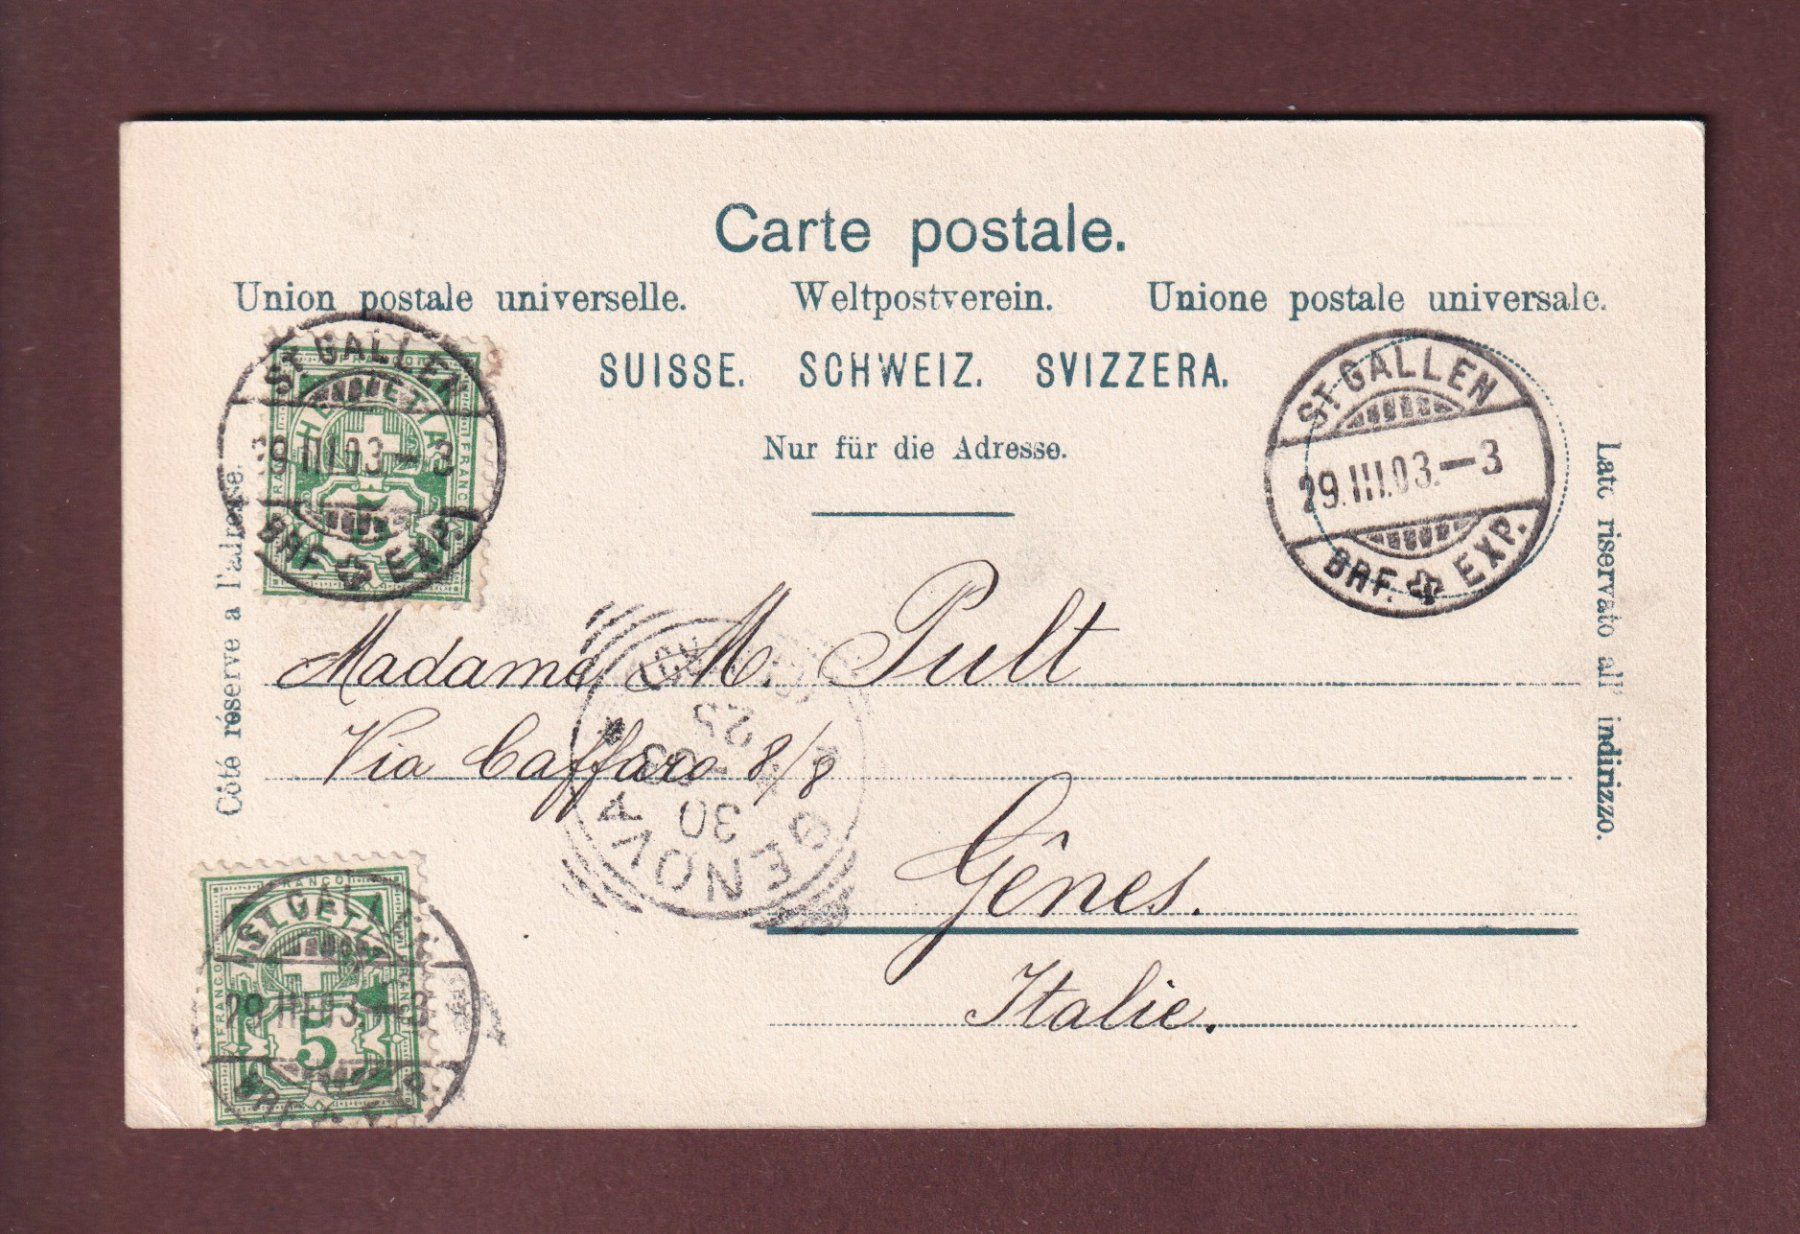 Carte postale.
Union postale universelle. Weltpostverein. Unione postale universale.
SUISSE. SCHWEIZ. SVIZZERA.
Nur für die Adresse.
Côté réservé à l'adresse.
Lato riservato all' indirizzo.
ST. GALLEN
29.III.03.–3
BRF. EXP.
HELVETIA
FRANCO FRANCO
5
ST. GALLEN
29.III.03.–3
BRF. EXP.
Madame M. Pult
Via Caffaro 8/8
Gênes.
Italie.
GENOVA
30
03
HELVETIA
FRANCO FRANCO FRANCO
5
29.III.03.–3